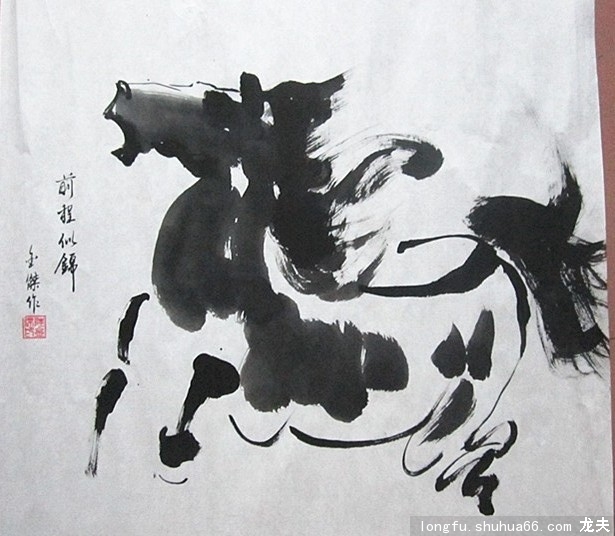 前程似錦
金傑作
longfu.shuhua66.com 龙夫